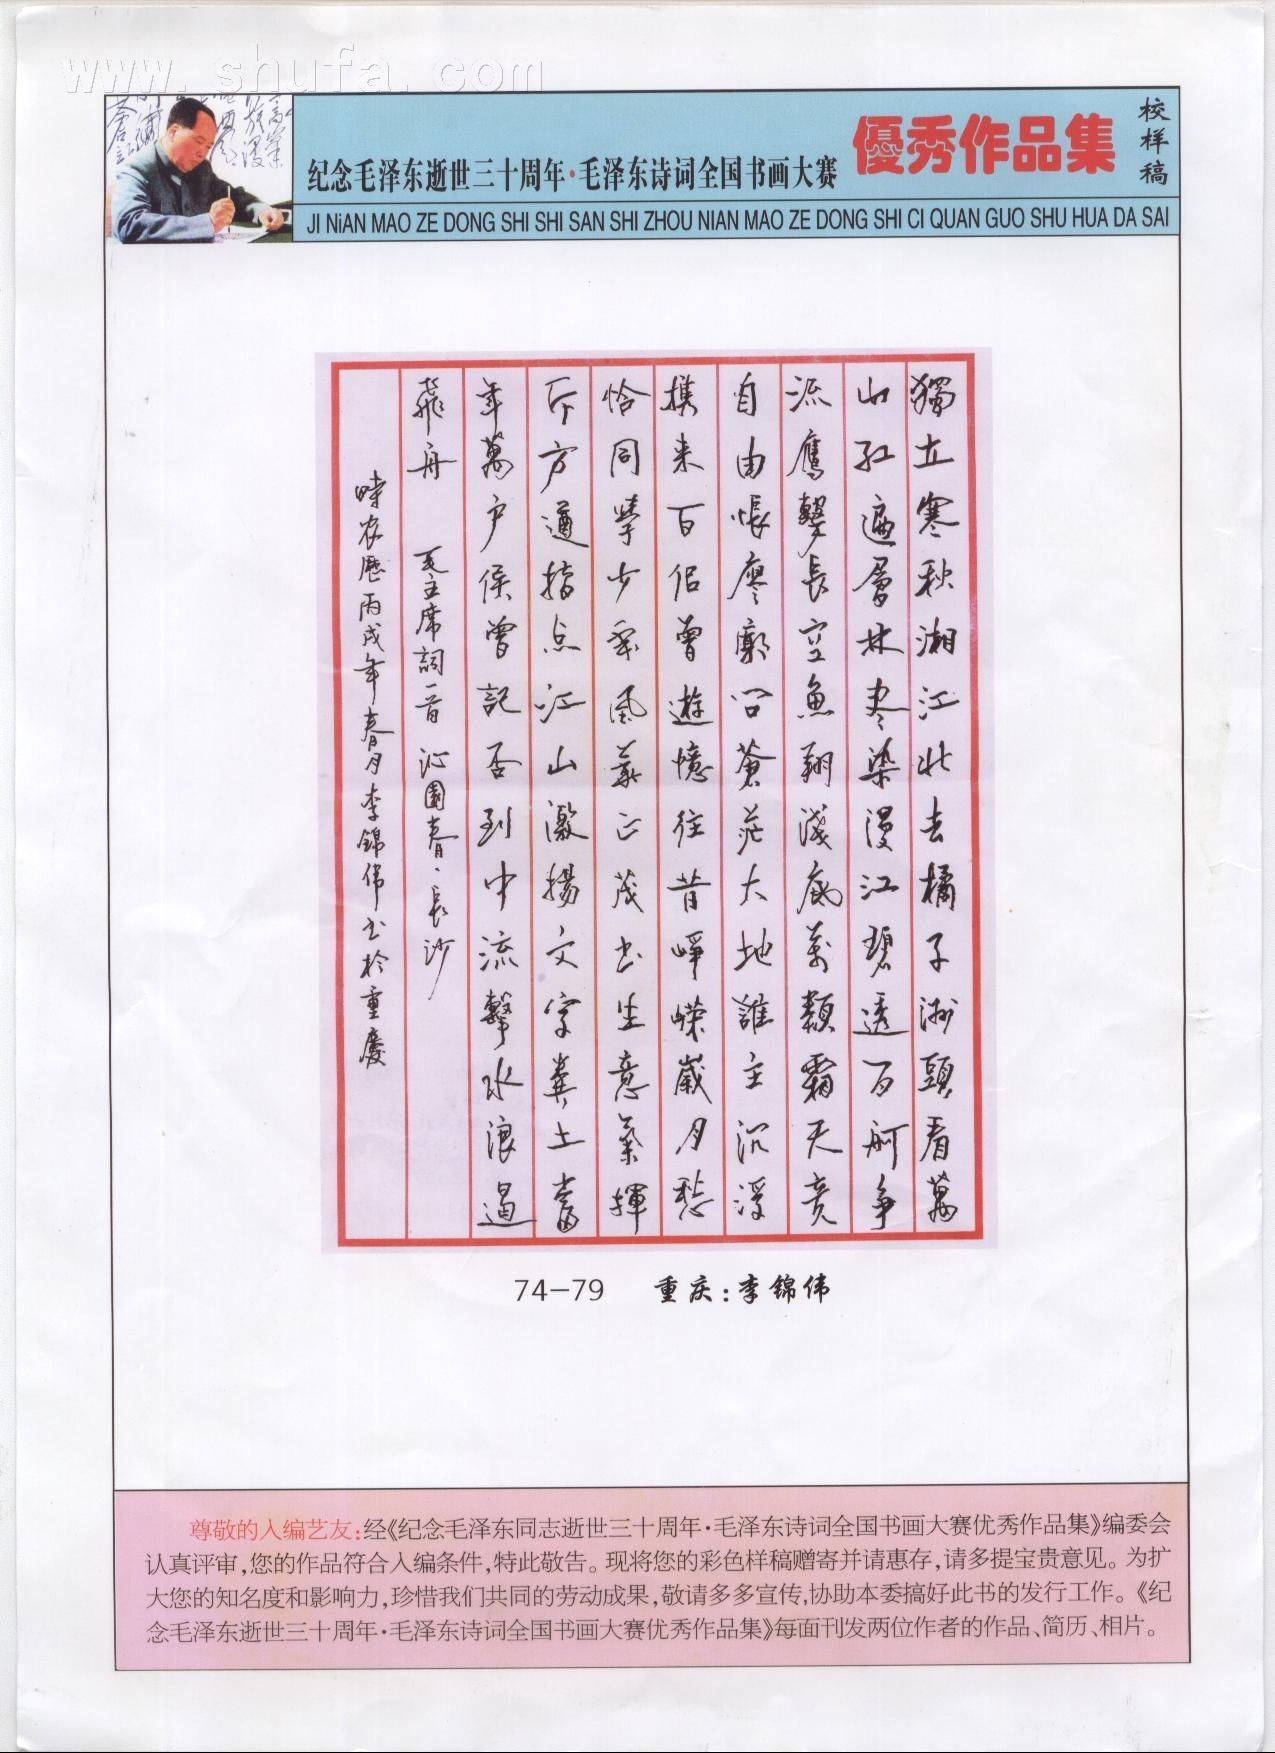 www.shufa.com
纪念毛泽东逝世三十周年·毛泽东诗词全国书画大赛
優秀作品集
校样稿
JI NiAN MAO ZE DONG SHI SHI SAN SHI ZHOU NIAN MAO ZE DONG SHI CI QUAN GUO SHU HUA DA SAI
獨立寒秋湘江北去橘子洲頭看萬
山红遍層林盡染漫江碧透百舸争
流鷹擊長空魚翔淺底萬類霜天竞
自由悵廖廓问蒼茫大地誰主沉浮
携来百侣曾遊憶往昔峥嵘歲月稠
恰同學少年風華正茂书生意氣揮
斥方遒指点江山激揚文字糞土當
年萬户侯曾記否到中流擊水浪遏
飛舟 毛主席詞一首 沁園春·長沙
時农歷丙戌年春月李錦伟书於重慶
74-79 重庆:李锦伟
尊敬的入编艺友:经《纪念毛泽东同志逝世三十周年·毛泽东诗词全国书画大赛优秀作品集》编委会
认真评审,您的作品符合入编条件,特此敬告。现将您的彩色样稿赠寄并请惠存,请多提宝贵意见。为扩
大您的知名度和影响力,珍惜我们共同的劳动成果,敬请多多宣传,协助本委搞好此书的发行工作。《纪
念毛泽东逝世三十周年·毛泽东诗词全国书画大赛优秀作品集》每面刊发两位作者的作品、简历、相片。